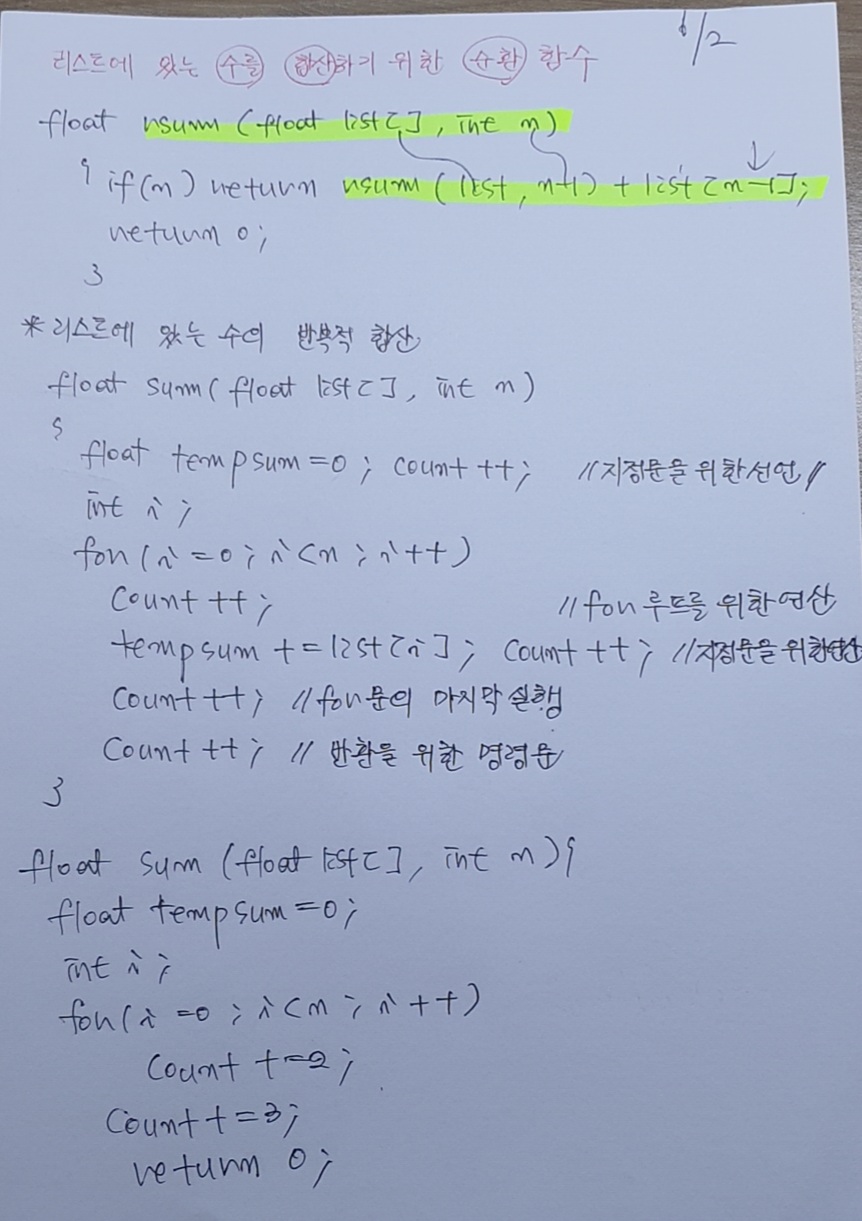 6/2
리스트에 있는 수를 합산하기 위한 순환 함수
float rsum (float list[], int n)
{ if(n) return rsum (list, n-1) + list[n-1];
return 0;
}
* 리스트에 있는 수의 반복적 합산
float sum( float list[], int n)
{
float tempsum=0; count ++; //지정문을 위한선언//
int i;
for(i=0; i<n; i++)
count ++; //for 루프를 위한연산
tempsum +=list[i]; count ++; //지정문을 위한연산
count ++; //for문의 마지막 실행
count ++; // 반환을 위한 명령문
}
float sum (float list[], int n){
float tempsum=0;
int i;
for(i=0; i<n; i++)
count +=2;
count+=3;
return 0;